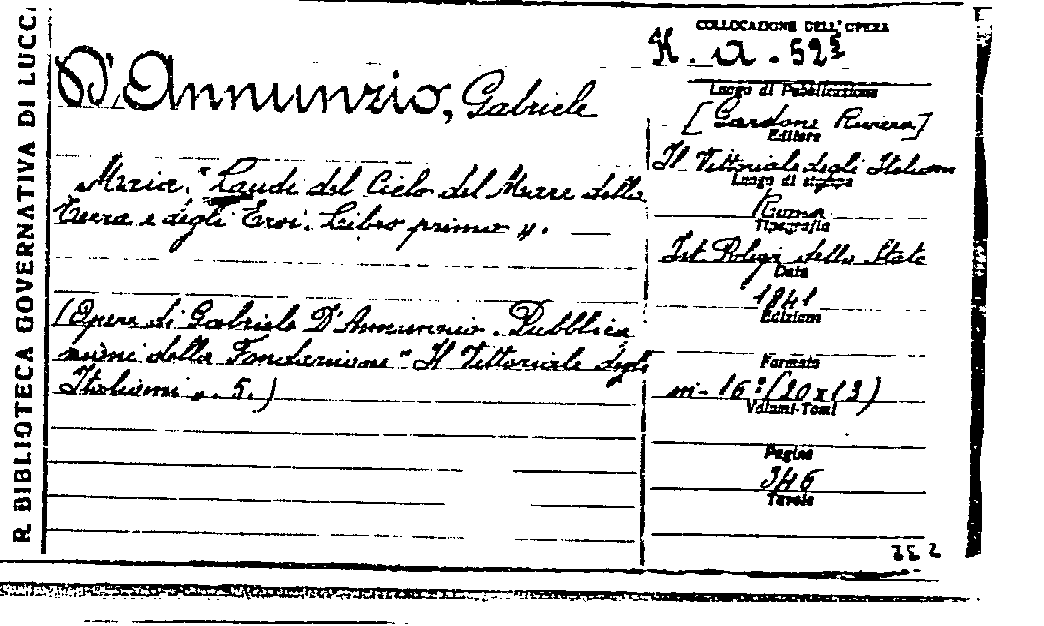 R. BIBLIOTECA GOVERNATIVA DI LUCCA
COLLOCAZIONE DELL'OPERA
K. a. 52
D'Annunzio, Gabriele
Maia. "Laudi del Cielo del Mare della
Terra e degli Eroi. Libro primo".
(Opere di Gabriele D'Annunzio. Pubblica
zioni della Fondazione "Il Vittoriale degli
Italiani". 5.)
Luogo di Pubblicazione
[Gardone Riviera]
Editore
Il Vittoriale degli Italiani
Luogo di stampa
Roma
Tipografia
Ist. Poligr. dello Stato
Data
1941
Edizioni
Formato
in-16° (20x13)
Volumi-Tomi
Pagine
346
Tavole